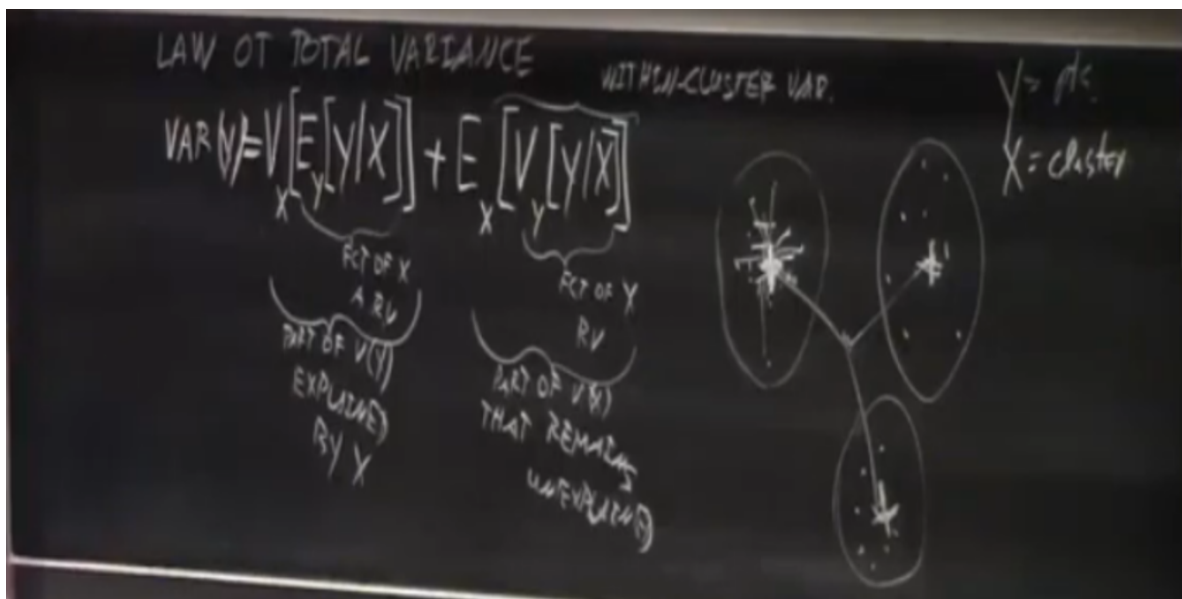 LAW OF TOTAL VARIANCE
WITHIN-CLUSTER VAR.
VAR(Y)=V_X[E_Y[Y|X]] + E_X[V_Y[Y|X]]
FCT OF X
A RV
PART OF V(Y)
EXPLAINED
BY X
FCT OF X
RV
PART OF V(Y)
THAT REMAINS
UNEXPLAINED
Y = pts.
X = cluster